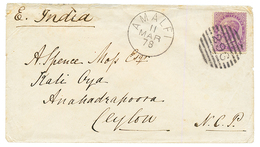 E. India
AMALFI
11
MAR
78
A. Spence Moss Esqr.
Kali Oya
Anahadrapoora
Ceylon
N.C.P.